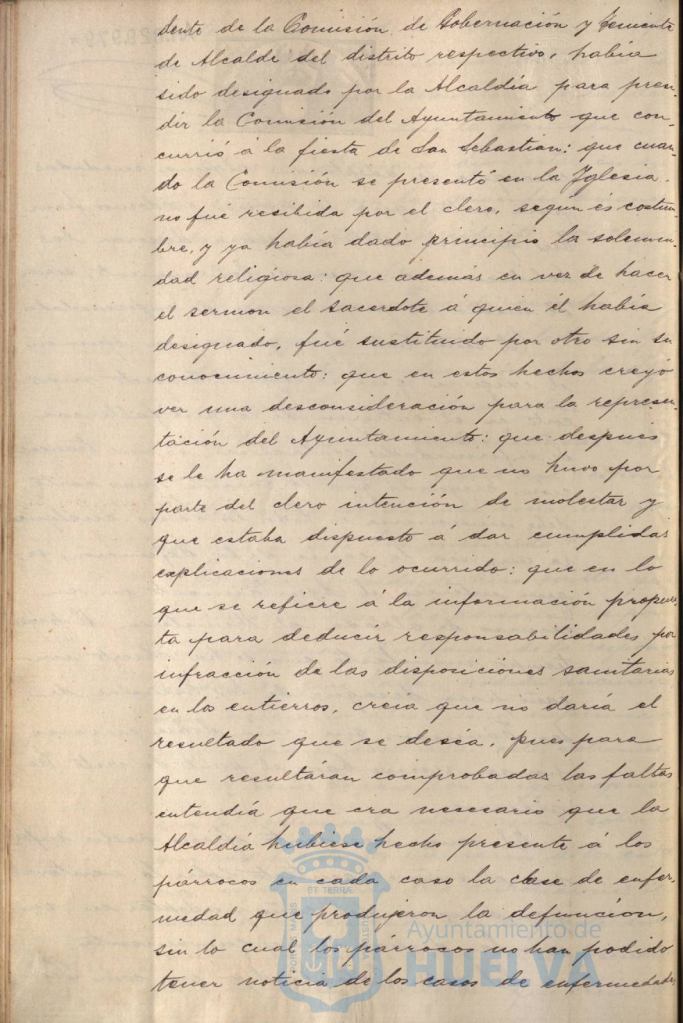 dente de la Comisión de Gobernación y Teniente
de Alcalde del distrito respectivo, había
sido designado por la Alcaldía para presi-
dir la Comisión del Ayuntamiento que con-
currió á la fiesta de San Sebastian: que cuan-
do la Comisión se presentó en la Iglesia
no fué recibida por el clero, según es costum-
bre, y ya había dado principio la solemni-
dad religiosa: que además en vez de hacer
el sermon el sacerdote á quien él había
designado, fué sustituido por otro sin su
conocimiento: que en estos hechos creyó
ver una desconsideración para la represen-
tación del Ayuntamiento: que después
se le ha manifestado que no huvo por
parte del clero intención de molestar y
que estaba dispuesto á dar cumplidas
explicaciones de lo ocurrido: que en lo
que se refiere á la información propues-
ta para deducir responsabilidades por
infracción de las disposiciones sanitarias
en los entierros, creia que no daría el
resultado que se deséa, pues para
que resultáran comprobadas las faltas
entendía que era necesario que la
Alcaldía hubiese hecho presente á los
párrocos en cada caso la clase de enfer-
medad que produjeron la defunción,
sin lo cual los párrocos no han podido
tener noticia de los casos de enfermedades
Ayuntamiento de
HUELVA